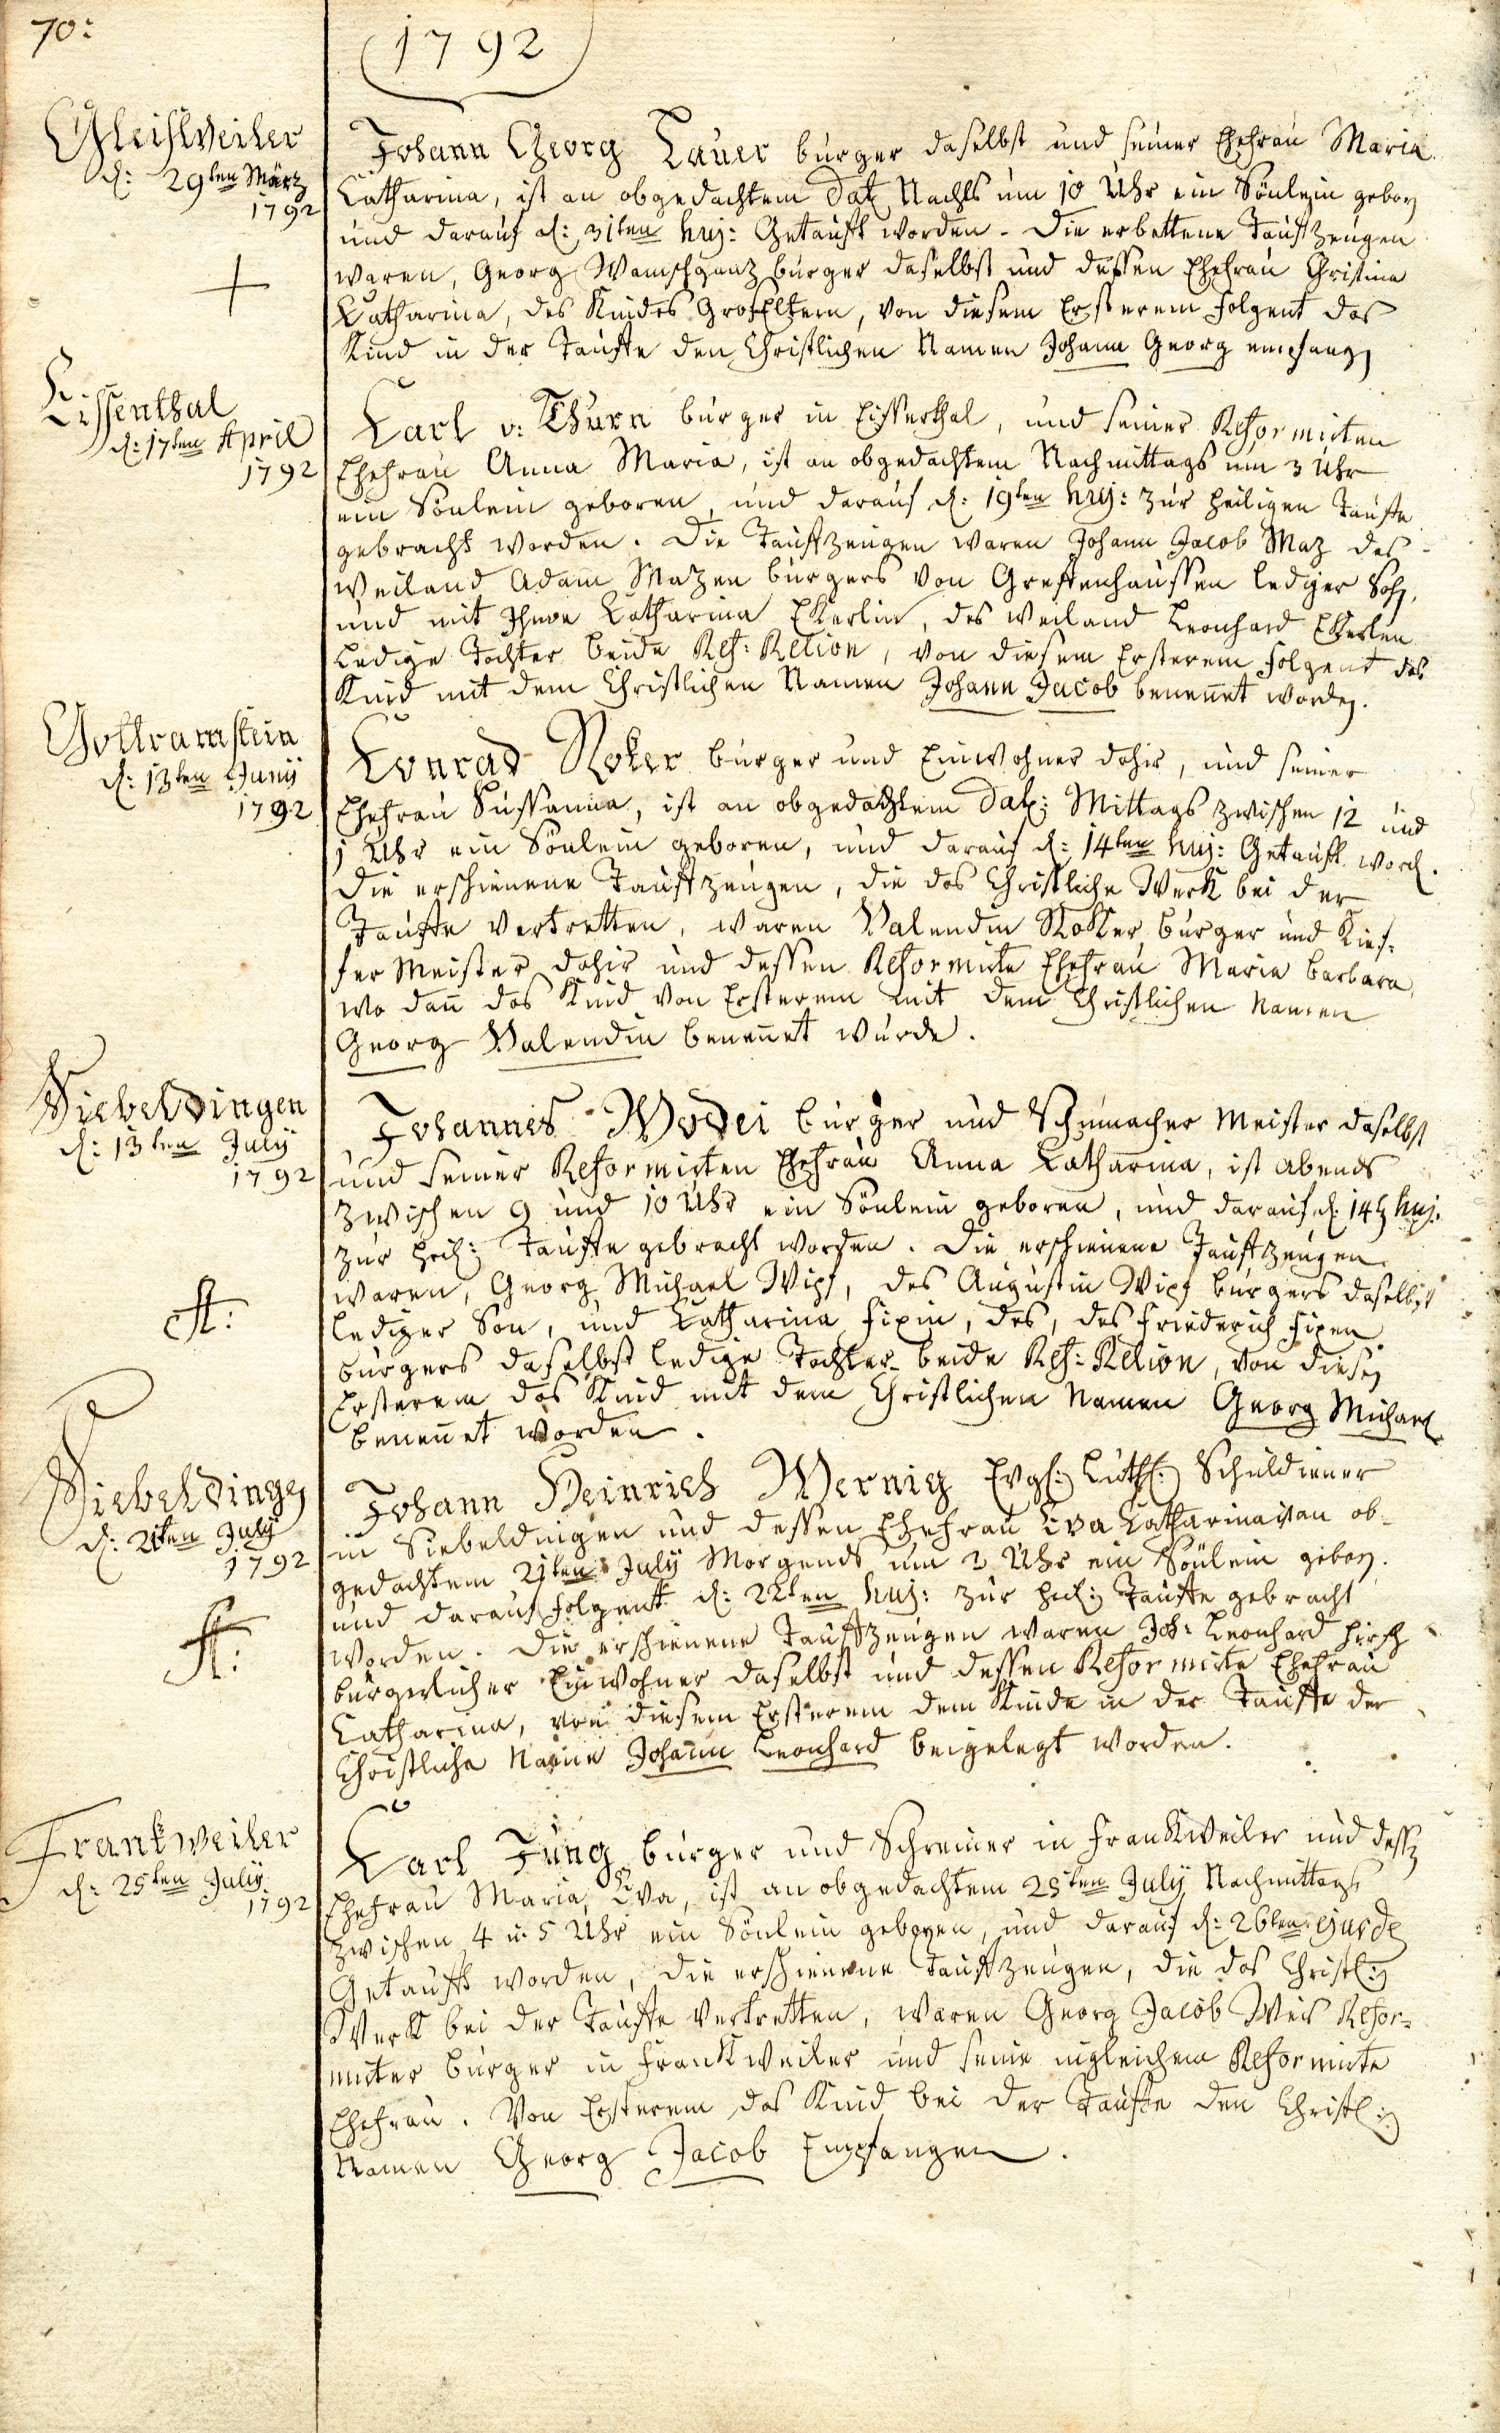 70:
1792
Gleisweiler
d: 29ten März
1792
Johann Georg Lauer burger daselbst und seiner Ehefrau Maria
Catharina, ist an obgedachtem Dat Nachts um 10 Uhr ein Sönlein geborn
und darauf d: 31ten huj: Getauft worden. Die erbettene Taufzeugen
waren, Georg Wamsganz burger daselbst und dessen Ehefrau Christina
Catharina, des Kindes GrosEltern, von diesem Ersterem folgent das
Kind in der Tauffe den Christlichen Namen Johann Georg empfangen
Eissenthal
d: 17ten April
1792
Carl v: Thurn burger in Eisserthal, und seiner Reformirten
Ehefrau Anna Maria, ist an obgedachtem Nachmittags um 3 Uhr
ein Sönlein geboren, und darauf d: 19ten huj: zur heiligen Tauffe
gebracht worden. Die Taufzeugen waren Johann Jacob Maz des
weiland Adam Mazen burgers von Greffenhaussen lediger Sohn,
und mit Ihme Catharina Ekerlin, des weiland Leonhard Ekerlen
Ledige Tochter beide Ref: Relion, von diesem Ersterem folgent das
Kind mit dem Christlichen Namen Johann Jacob benennet worden.
Gottramstein
d: 13ten Junij
1792
Conrad Roker burger und Einwohner dahir, und seiner
Ehefrau Sussanna, ist an obgedachtem Dat: Mittags zwischen 12 und
1 Uhr ein Sönlein geboren, und darauf d: 14ten huj: Getauft word.
Die erschienene Taufzeugen, die das Christliche Werk bei der
Tauffe vertretten, waren Valendin Rokker burger und Kief-
fer Meister dahir und dessen Reformirte Ehefrau Maria Barbara,
wo dan das Kind von Ersterem mit dem Christlichen Namen
Georg Valendin benennet wurde.
Siebeldingen
d: 13ten July
1792
Johannes Modei burger und Schumacher Meister daselbst
und seiner Reformirten Ehefrau Anna Catharina, ist abends
zwischen 9 und 10 Uhr ein Sönlein geboren, und darauf d: 14t huj:
zur heil: Tauffe gebracht worden. Die erschienene Taufzeugen
waren, Georg Michael Wipf, des Augustin Wipf burgers daselbst
lediger Son, und Catharina Fixin, des, des Friederich Fixen
burgers daselbst ledige Tochter beide Ref: Relion, von diesen
Ersterem das Kind mit dem Christlichen Namen Georg Michael
benennet worden.
Siebeldingen
d: 21ten July
1792
Johann Heinrich Wernig Evgl: Luth: Schuldiener
in Siebeldingen und dessen Ehefrau Eva Catharina ist an ob-
gedachtem 21ten July Morgends um 3 Uhr ein Sönlein geborn.
und darauf folgent d: 22ten huj: zur heil: Tauffe gebracht
worden. Die erschienene Taufzeugen waren Joh: Leonhard Hirsch
burgerlicher Einwohner daselbst und dessen Reformirte Ehefrau
Catharina, von diesem Ersterem dem Kinde in der Tauffe der
Christliche Name Johann Leonhard beigelegt worden.
Frankweiler
d: 25ten July
1792
Carl Jung burger und Schreiner in Frankweiler und dessen
Ehefrau Maria Eva, ist an obgedachtem 25ten July Nachmittags
zwischen 4 u: 5 Uhr ein Sönlein geboren, und darauf d: 26ten ejusde
Getauft worden, die erschienene Taufzeugen, die das Christl:
Werk bei der Tauffe vertretten, waren Georg Jacob Weis Refor-
mirter burger in Frankweiler und seine ingleichem Reformirte
Ehefrau. Von Ersterem das Kind bei der Tauffe den Christl:
Namen Georg Jacob Empfangen.